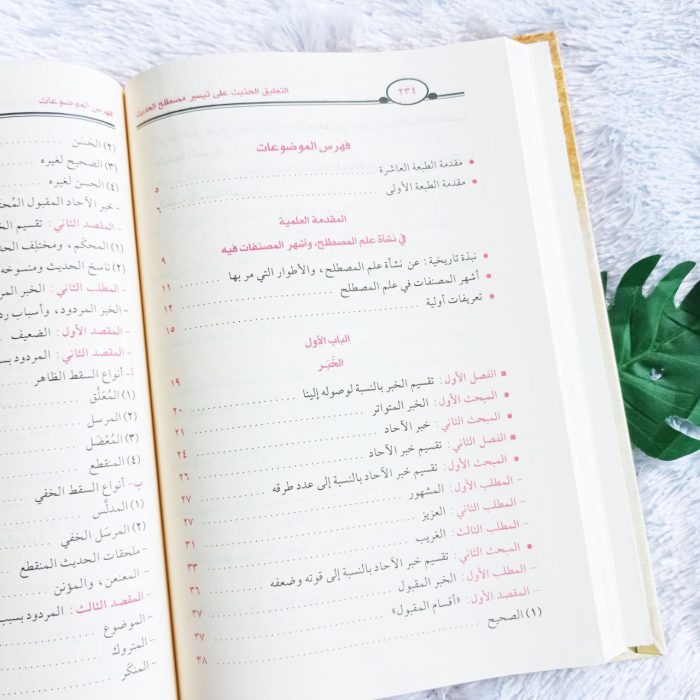 التعليق الحثيث على تيسير مصطلح الحديث
٢٣٤
فهرس الموضوعات
• مقدمة الطبعة العاشرة ٥
• مقدمة الطبعة الأولى ٦
المقدمة العلمية
في نشأة علم المصطلح، وأشهر المصنفات فيه ٩
• نبذة تاريخية: عن نشأة علم المصطلح، والأطوار التي مر بها ١١
• أشهر المصنفات في علم المصطلح ١٢
• تعريفات أولية ١٥
الباب الأول
الخَبَر ١٩
■ الفصل الأول: تقسيم الخبر بالنسبة لوصوله إلينا ٢٠
• المبحث الأول: الخبر المتواتر ٢١
• المبحث الثاني: خبر الآحاد ٢٤
■ الفصل الثاني: تقسيم خبر الآحاد ٢٦
• المبحث الأول: تقسيم خبر الآحاد بالنسبة إلى عدد طرقه ٢٧
- المطلب الأول: المشهور ٢٧
- المطلب الثاني: العزيز ٣١
- المطلب الثالث: الغريب ٣٣
• المبحث الثاني: تقسيم خبر الآحاد بالنسبة إلى قوته وضعفه ٣٦
- المطلب الأول: الخبر المقبول ٣٧
- المقصد الأول: «أقسام المقبول» ٣٧
(١) الصحيح ٣٨
فهرس الموضوعات
(٢) الحسَن
(٣) الصحيح لغيره
(٤) الحسن لغيره
- خبر الآحاد المقبول
- المقصد الثاني: تقسيم
(١) المحكَم، ومختلِف
(٢) ناسخ الحديث ومنسوخه
- المطلب الثاني: الخبر
- الخبر المردود، وأسباب
- المقصد الأول: الضعيف
- المقصد الثاني: المردود
أ- أنواع السقط الظاهر
(١) المُعلَّق
(٢) المرسل
(٣) المُعْضَل
(٤) المنقطع
ب- أنواع السقط الخفي
(١) المدلَّس
(٢) المرسَل الخفي
- ملحقات الحديث المنقطع
- المعنعن، والمؤنن
- المقصد الثالث: المردود بسبب
- الموضوع
- المتروك
- المنكَر